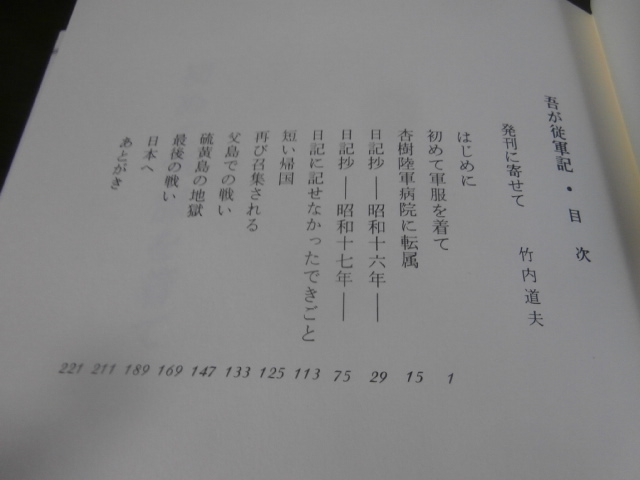 吾が従軍記・目次
発刊に寄せて 竹内道夫
はじめに
初めて軍服を着て 1
杏樹陸軍病院に転属 15
日記抄――昭和十六年―― 29
日記抄――昭和十七年―― 75
日記に記せなかったできごと 113
短い帰国 125
再び召集される 133
父島での戦い 147
硫黄島の地獄 169
最後の戦い 189
日本へ 211
あとがき 221